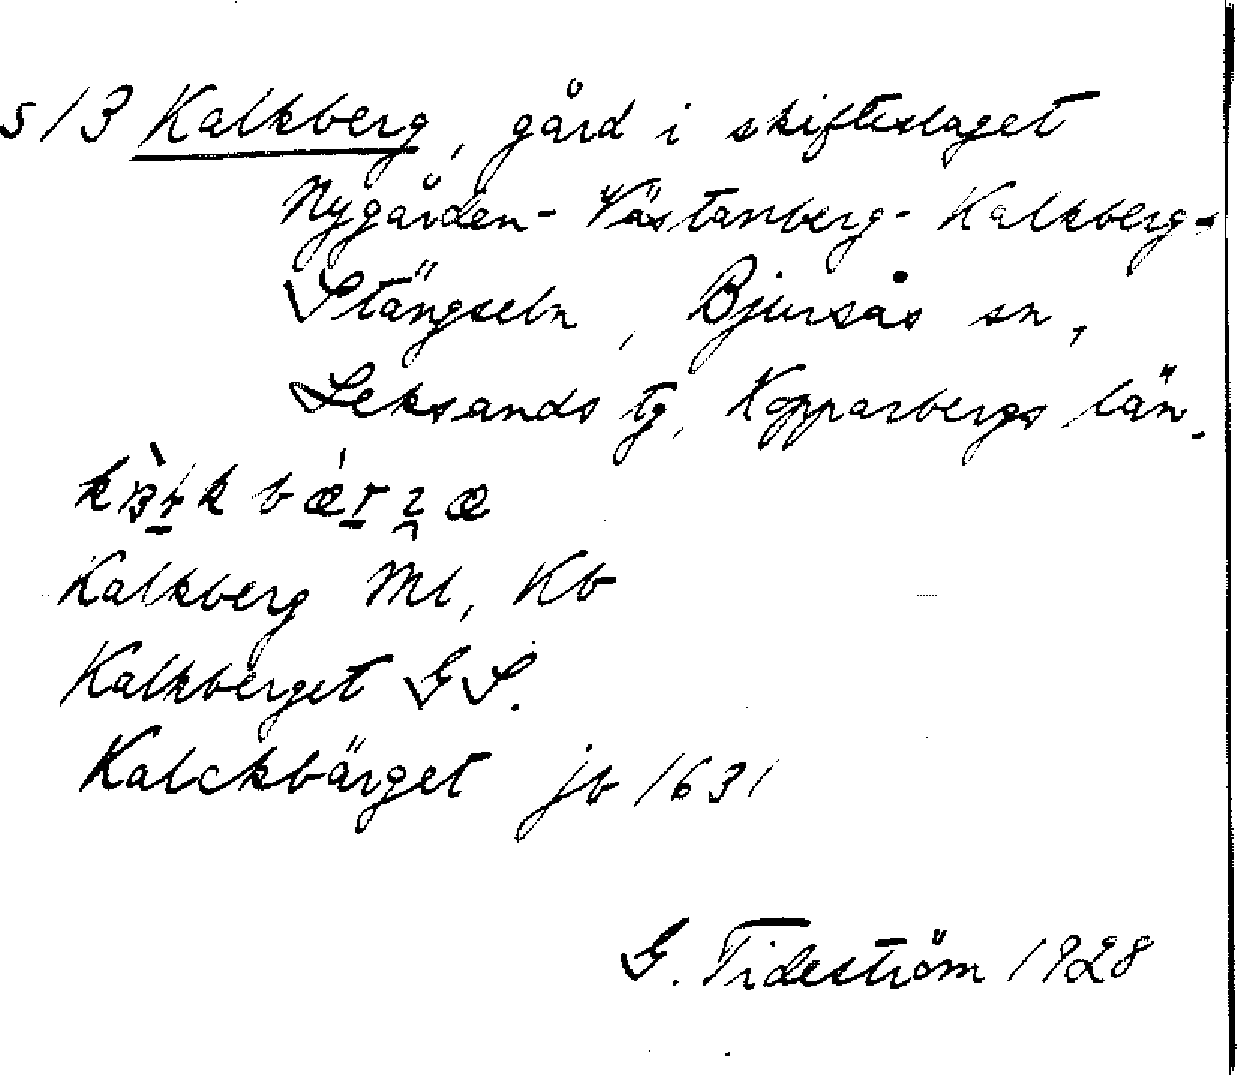 5/3 Kalkberg, gård i skifteslaget
Nygården - Västanberg - Kalkberg -
Stängseln, Bjursås sn,
Leksands tg, Kopparbergs län.
Kalkberg Ml, Kb
Kalkberget GS.
Kalckbärget jb 1631
G. Tideström 1928